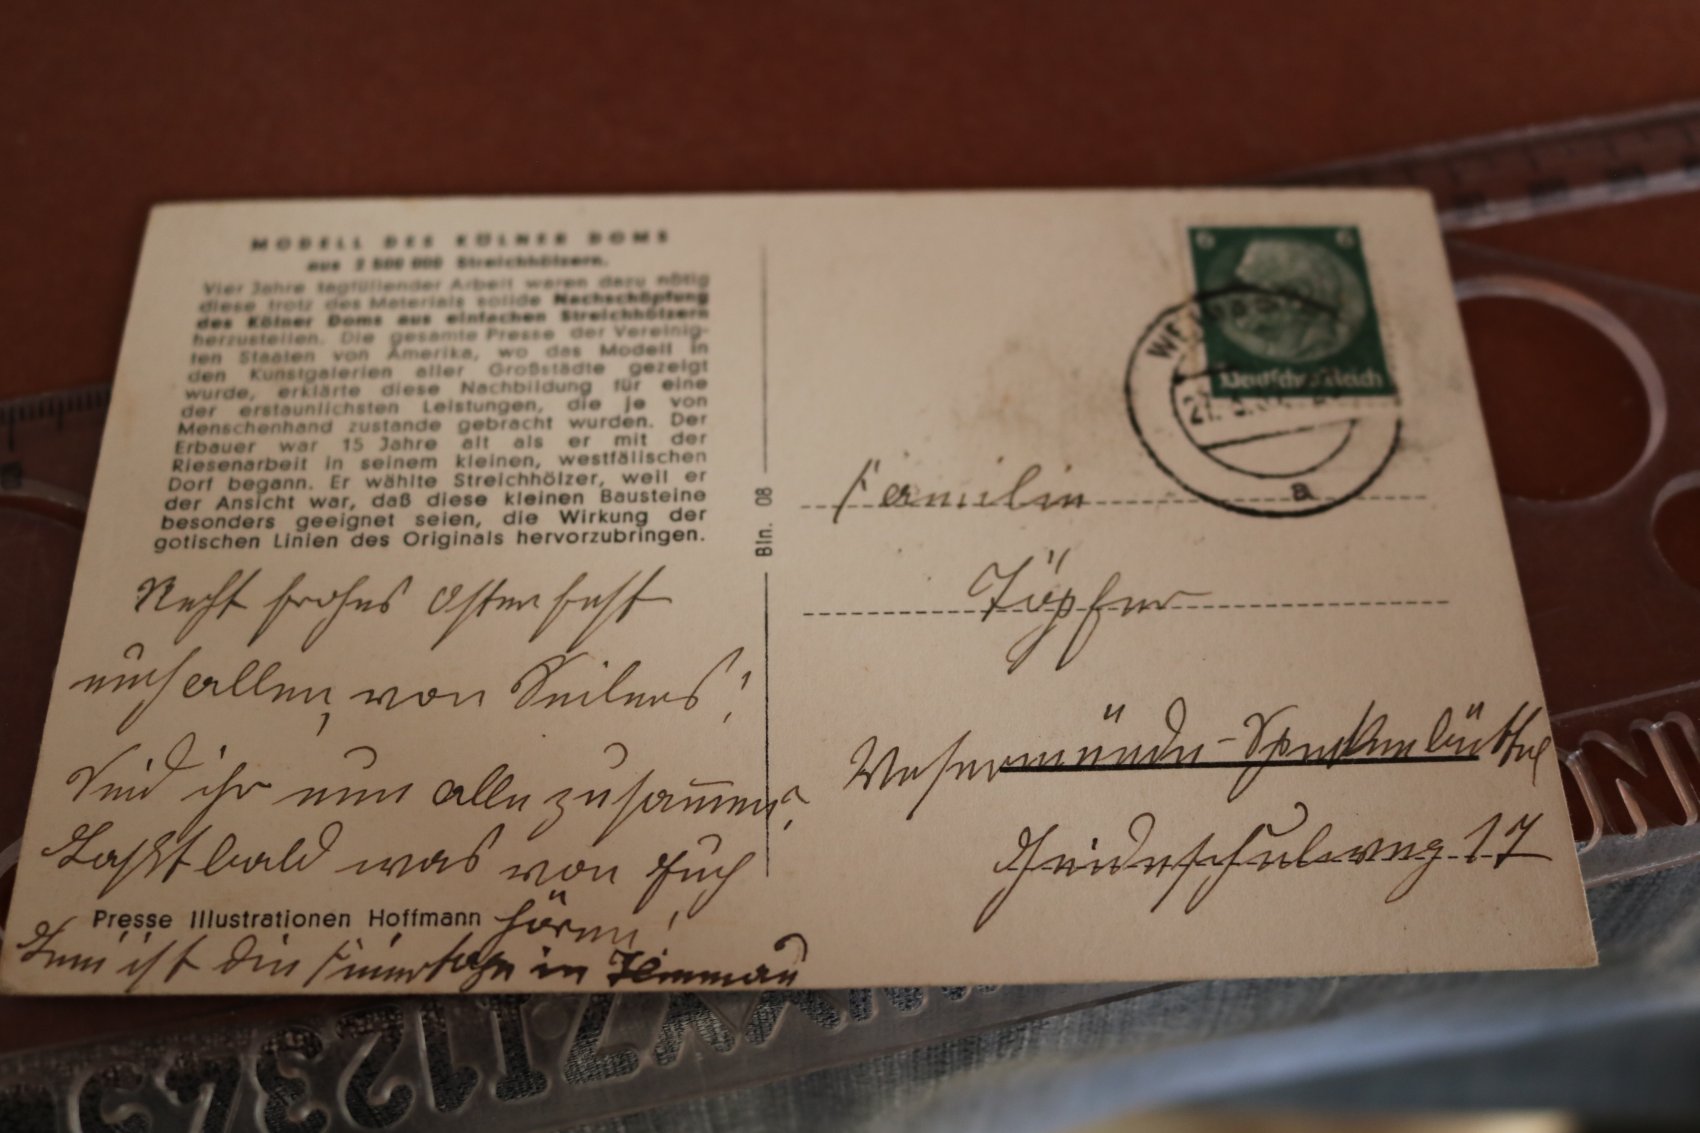 MODELL DES KÖLNER DOMS
aus 2 500 000 Streichhölzern.
Vier Jahre tagfüllender Arbeit waren dazu nötig
diese trotz des Materials solide Nachschöpfung
des Kölner Doms aus einfachen Streichhölzern
herzustellen. Die gesamte Presse der Vereinig-
ten Staaten von Amerika, wo das Modell in
den Kunstgalerien aller Großstädte gezeigt
wurde, erklärte diese Nachbildung für eine
der erstaunlichsten Leistungen, die je von
Menschenhand zustande gebracht wurden. Der
Erbauer war 15 Jahre alt als er mit der
Riesenarbeit in seinem kleinen, westfälischen
Dorf begann. Er wählte Streichhölzer, weil er
der Ansicht war, daß diese kleinen Bausteine
besonders geeignet seien, die Wirkung der
gotischen Linien des Originals hervorzubringen.
Recht frohes Osterfest
euch allen, von Seilers!
Seid ihr nun alle zusammen?
Laßt bald was von Euch
hören!
Presse Illustrationen Hoffmann
ist die Feiertage in
Bln. 08
6 6
Deutsches Reich
21.3.37
a
Familie
Töpfer
Wesermünde-Speckenbüttel
Heideschulweg 17